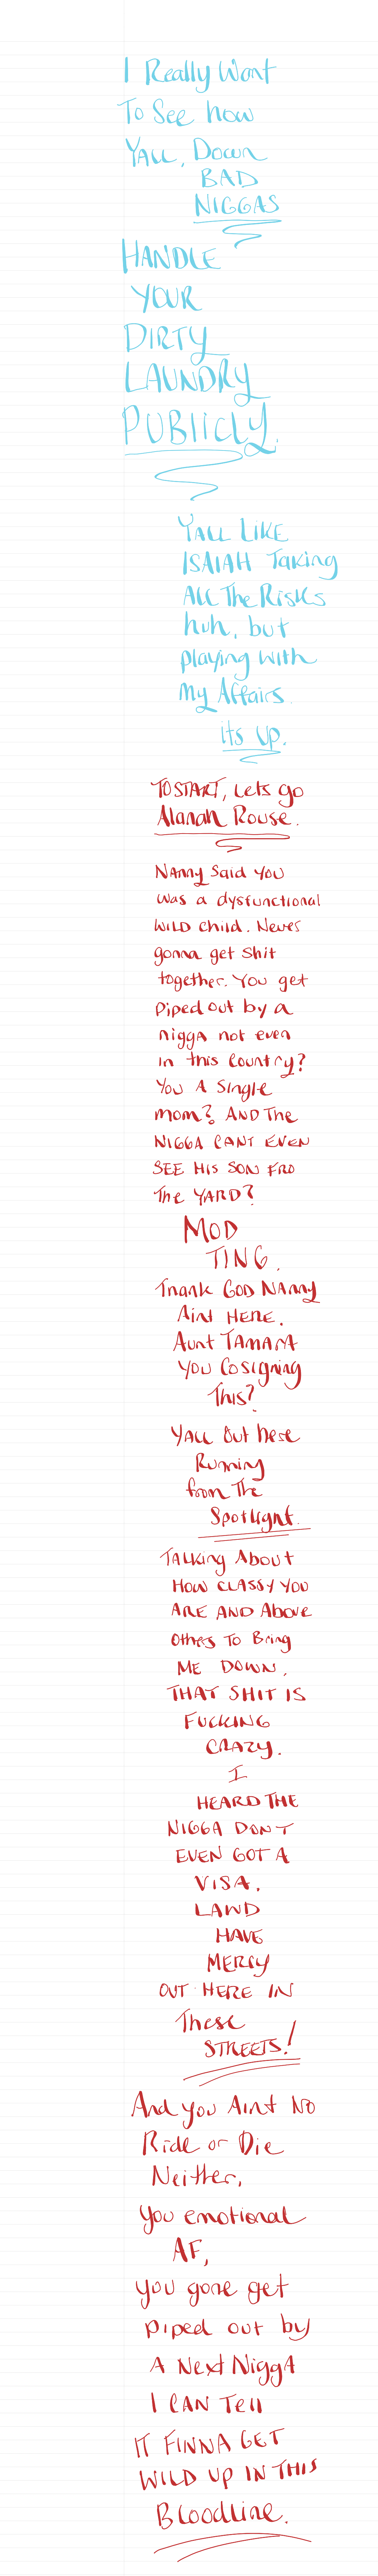 I Really Want
To See how
YALL, Down
BAD
NIGGAS
HANDLE
YOUR
DIRTY
LAUNDRY
PUBLICLY.
YALL LIKE
ISAIAH Taking
All The Risks
huh, but
playing with
My Affairs.
its up.
TO START, Lets go
Alanah Rouse.
Nanny Said You
Was a dysfunctional
WILD child. Never
gonna get Shit
together. You get
Piped out by a
nigga not even
in this Country?
You A Single
mom? AND The
NIGGA CANT EVEN
SEE HIS SON FRO
The YARD?
MOD
TING.
Thank GOD NANNY
Aint HERE.
Aunt TAMARA
You Cosigning
This?
YALL Out here
Running
from The
Spotlight.
TALKing About
How CLASSY YOU
ARE AND Above
Others To Bring
ME DOWN.
THAT SHIT IS
FUCKING
CRAZY.
I
HEARD THE
NIGGA DONT
EVEN GOT A
VISA.
LAWD
HAVE
MERCY
OUT HERE IN
These
STREETS!
And you Aint No
Ride or Die
Neither,
You emotional
AF,
you gone get
piped out by
A Next NiggA
I CAN Tell
IT FINNA GET
WILD UP IN THIS
Bloodline.